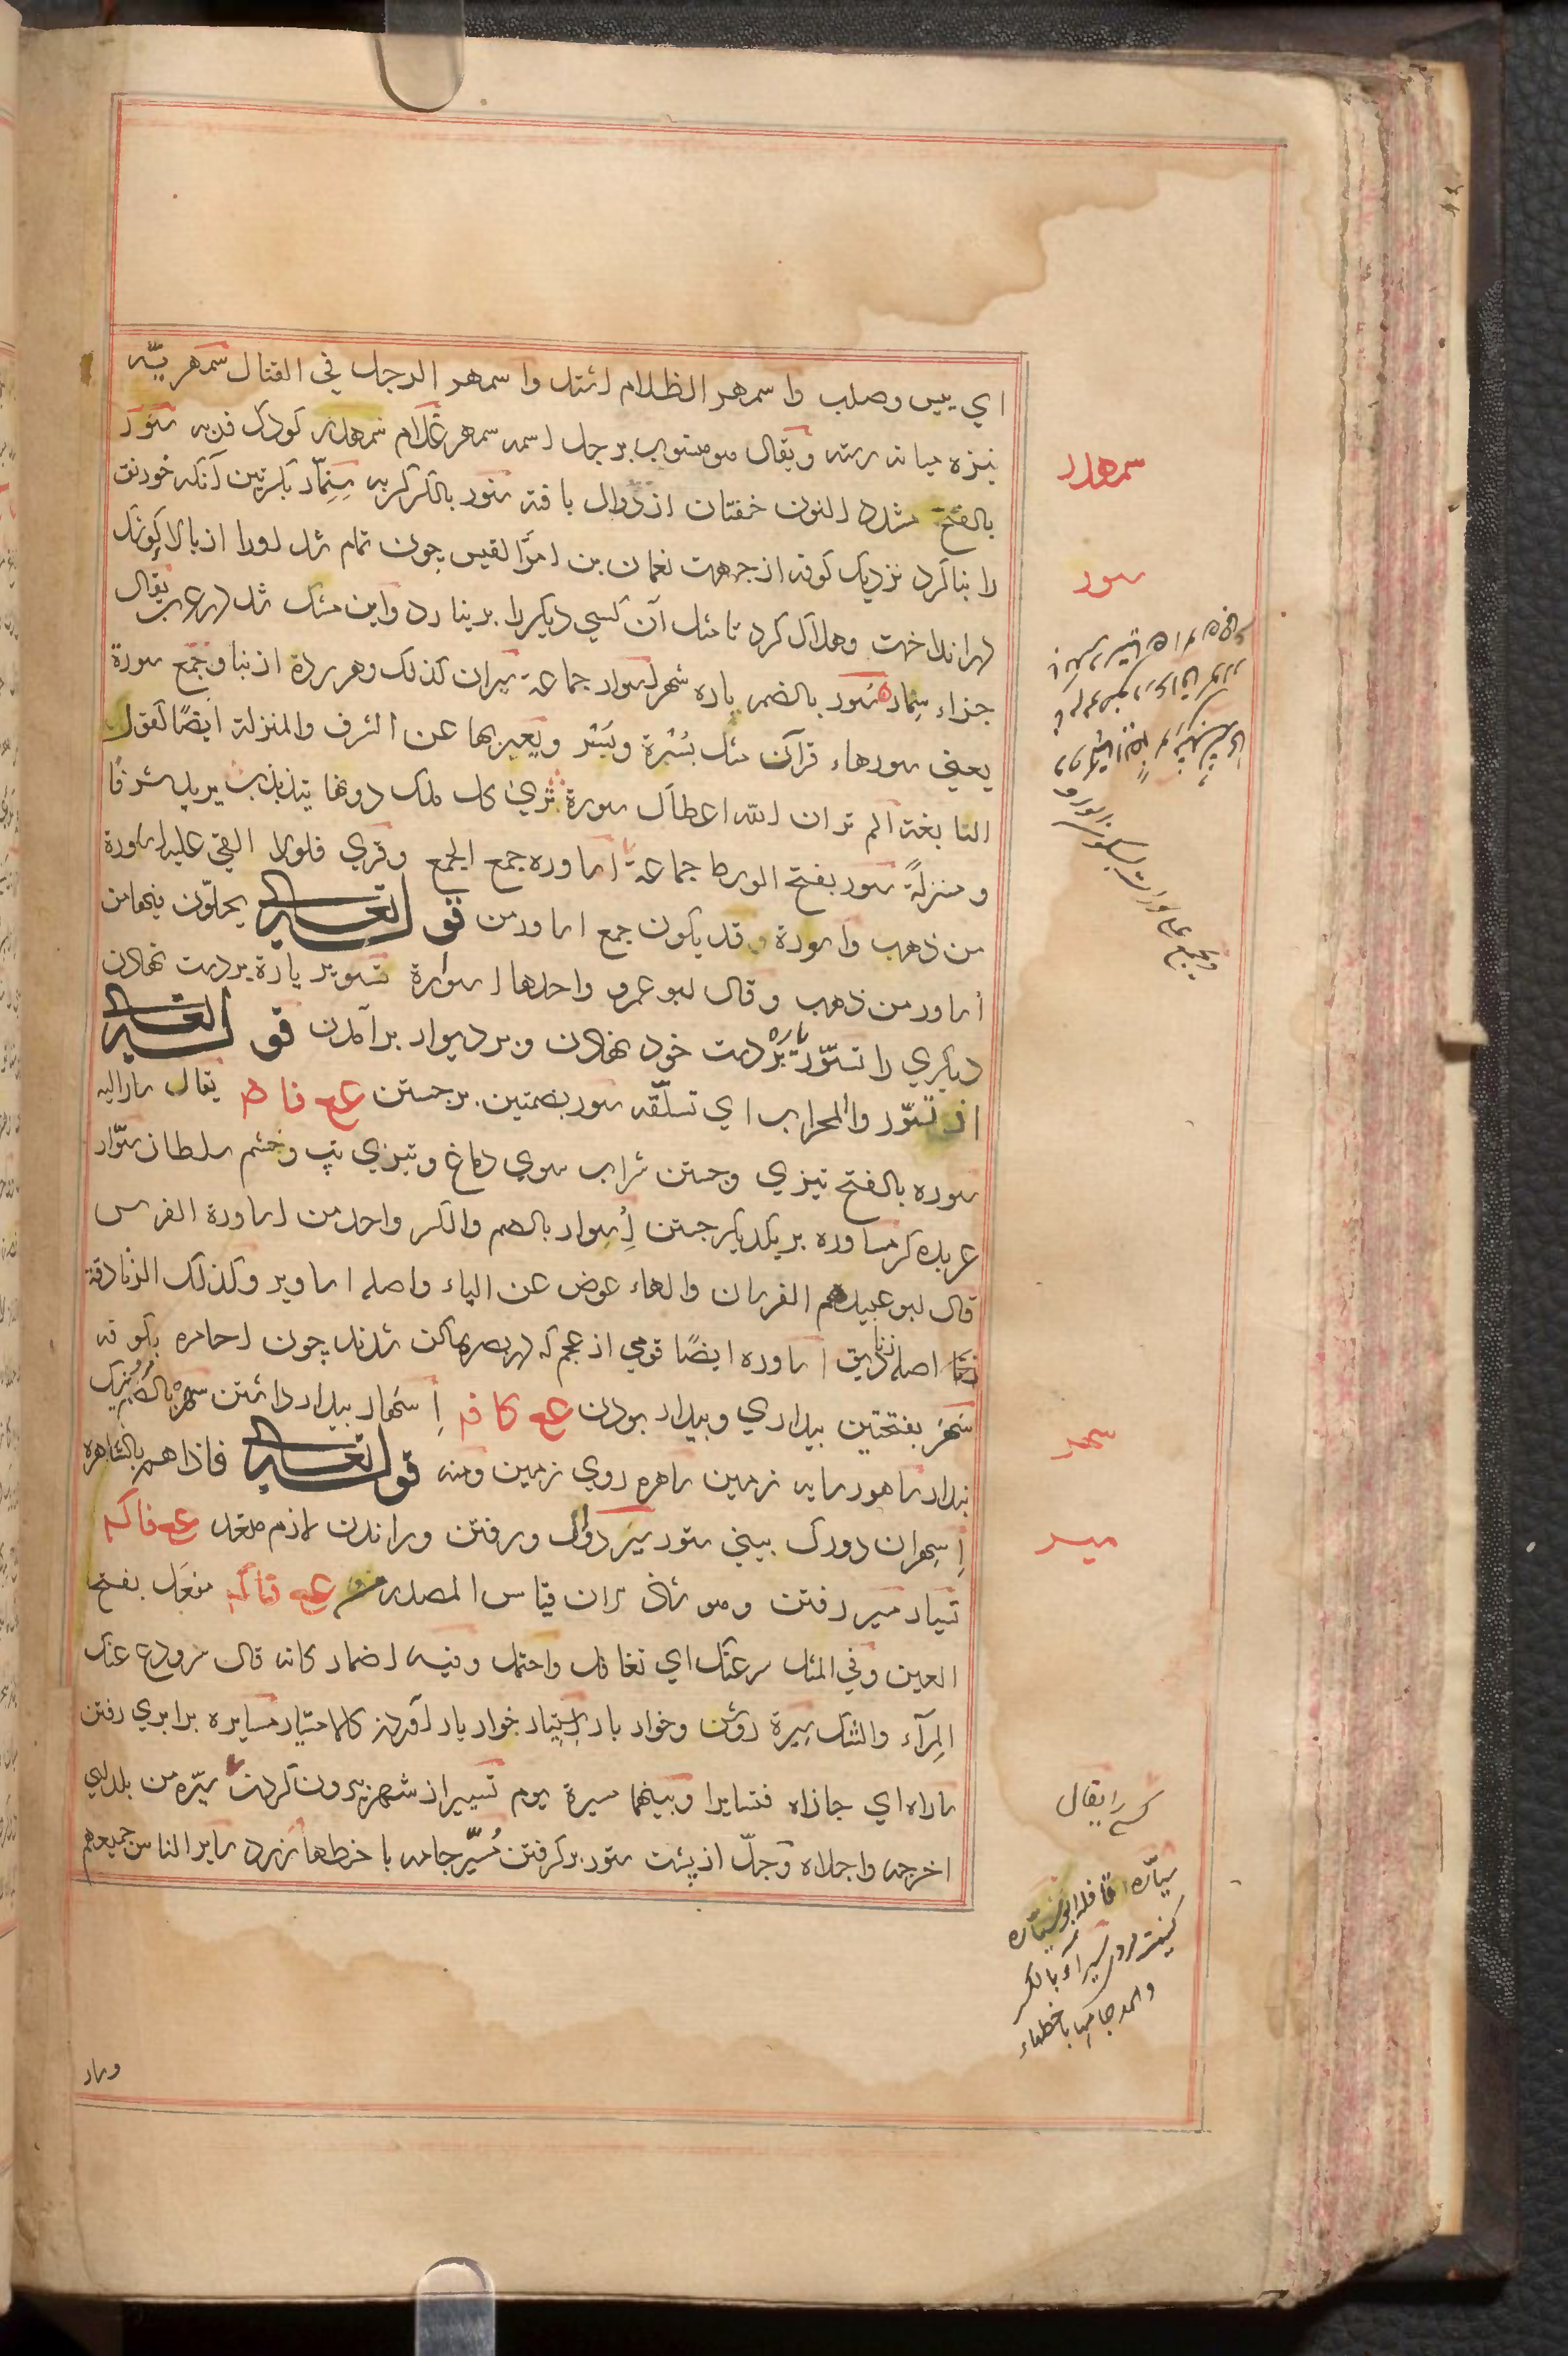 اي يبس وصلب واسمهر الظلام اشتد واسمهر الرجل في القتال سمهريّه
نيزه ويقال هو منسوب برجل اسمه سمهر غلام سمهدر كودك فربه سنور
بالفتح مشدد النون خفتان از دوال بافته سنور بالكسر كربه سِنِمّار بكسرتين آنكه خورنق
را بنا كرد نزديك كوفه از جهت نعمان بن امرؤ القيس چون تمام شد اورا از بالا كوشك
در انداخت وهلاك كرد تا مثل آن كسي ديكر را بر نيارد واين مثل شد در عرب يقال
جزاء سنمار سور بالضم باره شهر اسوار جماعة سيران كذلك وهر رده از بنا وجمع سورة
يعني سورهاء قرآن مثل بُسْرة وبُسْر ويعبر بها عن الشرف والمنزلة ايضًا لقول
النابغة الم تر ان الله اعطاك سورة تري كل ملك دونها يتذبذب يريد شرفًا
ومنزلةً سور بفتح الوسط جماعة اساوره جمع الجمع وقري فلولا القي عليه اساورة
من ذهب واسورة وقد يكون جمع اساور من قوله تعالى يحلّون فيها من
أساور من ذهب وقال ابو عمرو واحدها اسوارة تسوير ياره بر دست نهادن
ديكري را تسوّر ياره بر دست خود نهادن وبر ديوار برآمدن قوله تعالى
اذ تسوّروا المحراب اي تسلّقه سور بضمتين بر جستن ع فاه يقال سار اليه
سوره بالفتح تيزي وجستن شراب سوي دماغ وتيزي تب وخشم سلطان سوّار
عربده كر مساوره بر يكديكر جستن أُسوار بالضم والكسر واحد من اساورة الفرس
قال ابو عبيد هم الفرسان والهاء عوض عن الياء واصله اساوير وكذلك الزنادقة
اصله زناديق اساوره ايضًا قومي از عجم كه در بصره ساكن شدند چون احامره بكوفه
سَهَر بفتحتين بيداري وبيدار بودن ع كاف إسهار بيدار داشتن
بيدار ساهور سايه زمين ساهره روي زمين ومنه قوله تعالى فاذا هم بالساهره
إسهران دورك بيني ستور سير دوال ورفتن وراندن لازم متعد ع فاكه
تسيار مسير رفتن وهو شاذ لان قياس المصدر من ع فاكه مفعَل بفتح
العين وفي المثل سر عنك اي تغافل واحتمل وفيه اضمار كانه قال سر ودع عنك
المرآء والشك سيرة روش وخوار بار إستيار خوار بار آوردن كالامتيار مسايره برابري رفتن
ساراه اي جازاه فتسايرا وبينهما مسيرة يوم تسيير از شهر بيرون كردن سيّره من بلده اي
اخرجه واجلاه وجلّ از پشت ستور بركرفتن مُسيَّر جامه با خطها زرد ساير الناس جميعهم
سمهدر
سور
سهر
سير
كسي را يقال
سيّاره قافله ابو سيّاره
كنيت مردي سيرآء بالكسر
والمد جامها با خطهاء
وسار